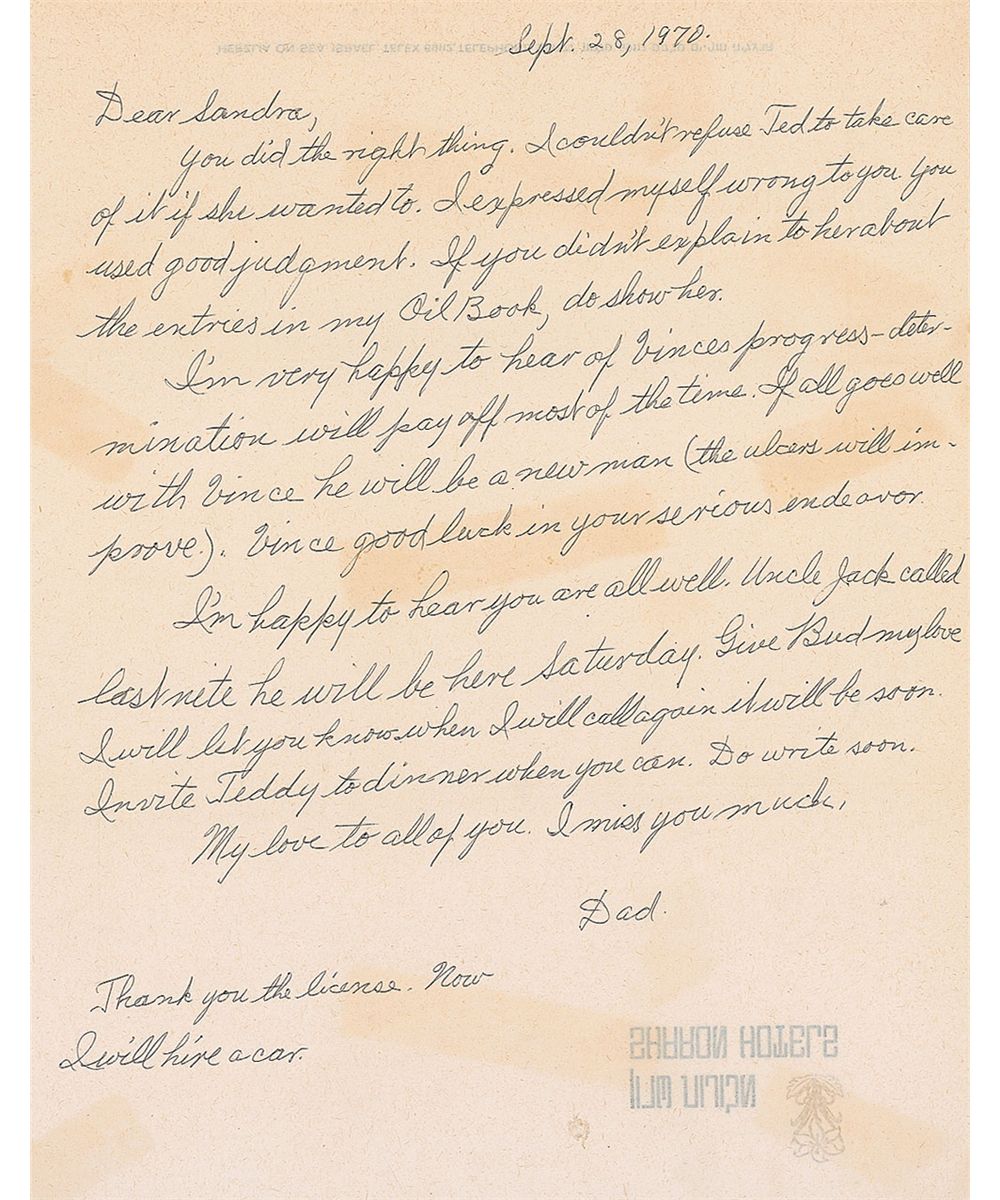 Sept. 28, 1970.
HERZLIA ON SEA, ISRAEL TELEX
Dear Sandra,
You did the right thing. I couldn't refuse Ted to take care
of it if she wanted to. I expressed myself wrong to you. You
used good judgment. If you didn't explain to her about
the entries in my Oil Book, do show her.
I'm very happy to hear of Vinces progress-deter-
mination will pay off most of the time. If all goes well
with Vince he will be a new man (the ulcers will im-
prove.). Vince good luck in your serious endeavor.
I'm happy to hear you are all well. Uncle Jack called
last nite he will be here Saturday. Give Bud my love
I will let you know when I will call again it will be soon.
Invite Teddy to dinner when you can. Do write soon.
My love to all of you. I miss you much.
Dad.
Thank you the license. Now
I will hire a car.
SHARON HOTELS
מלון השרון